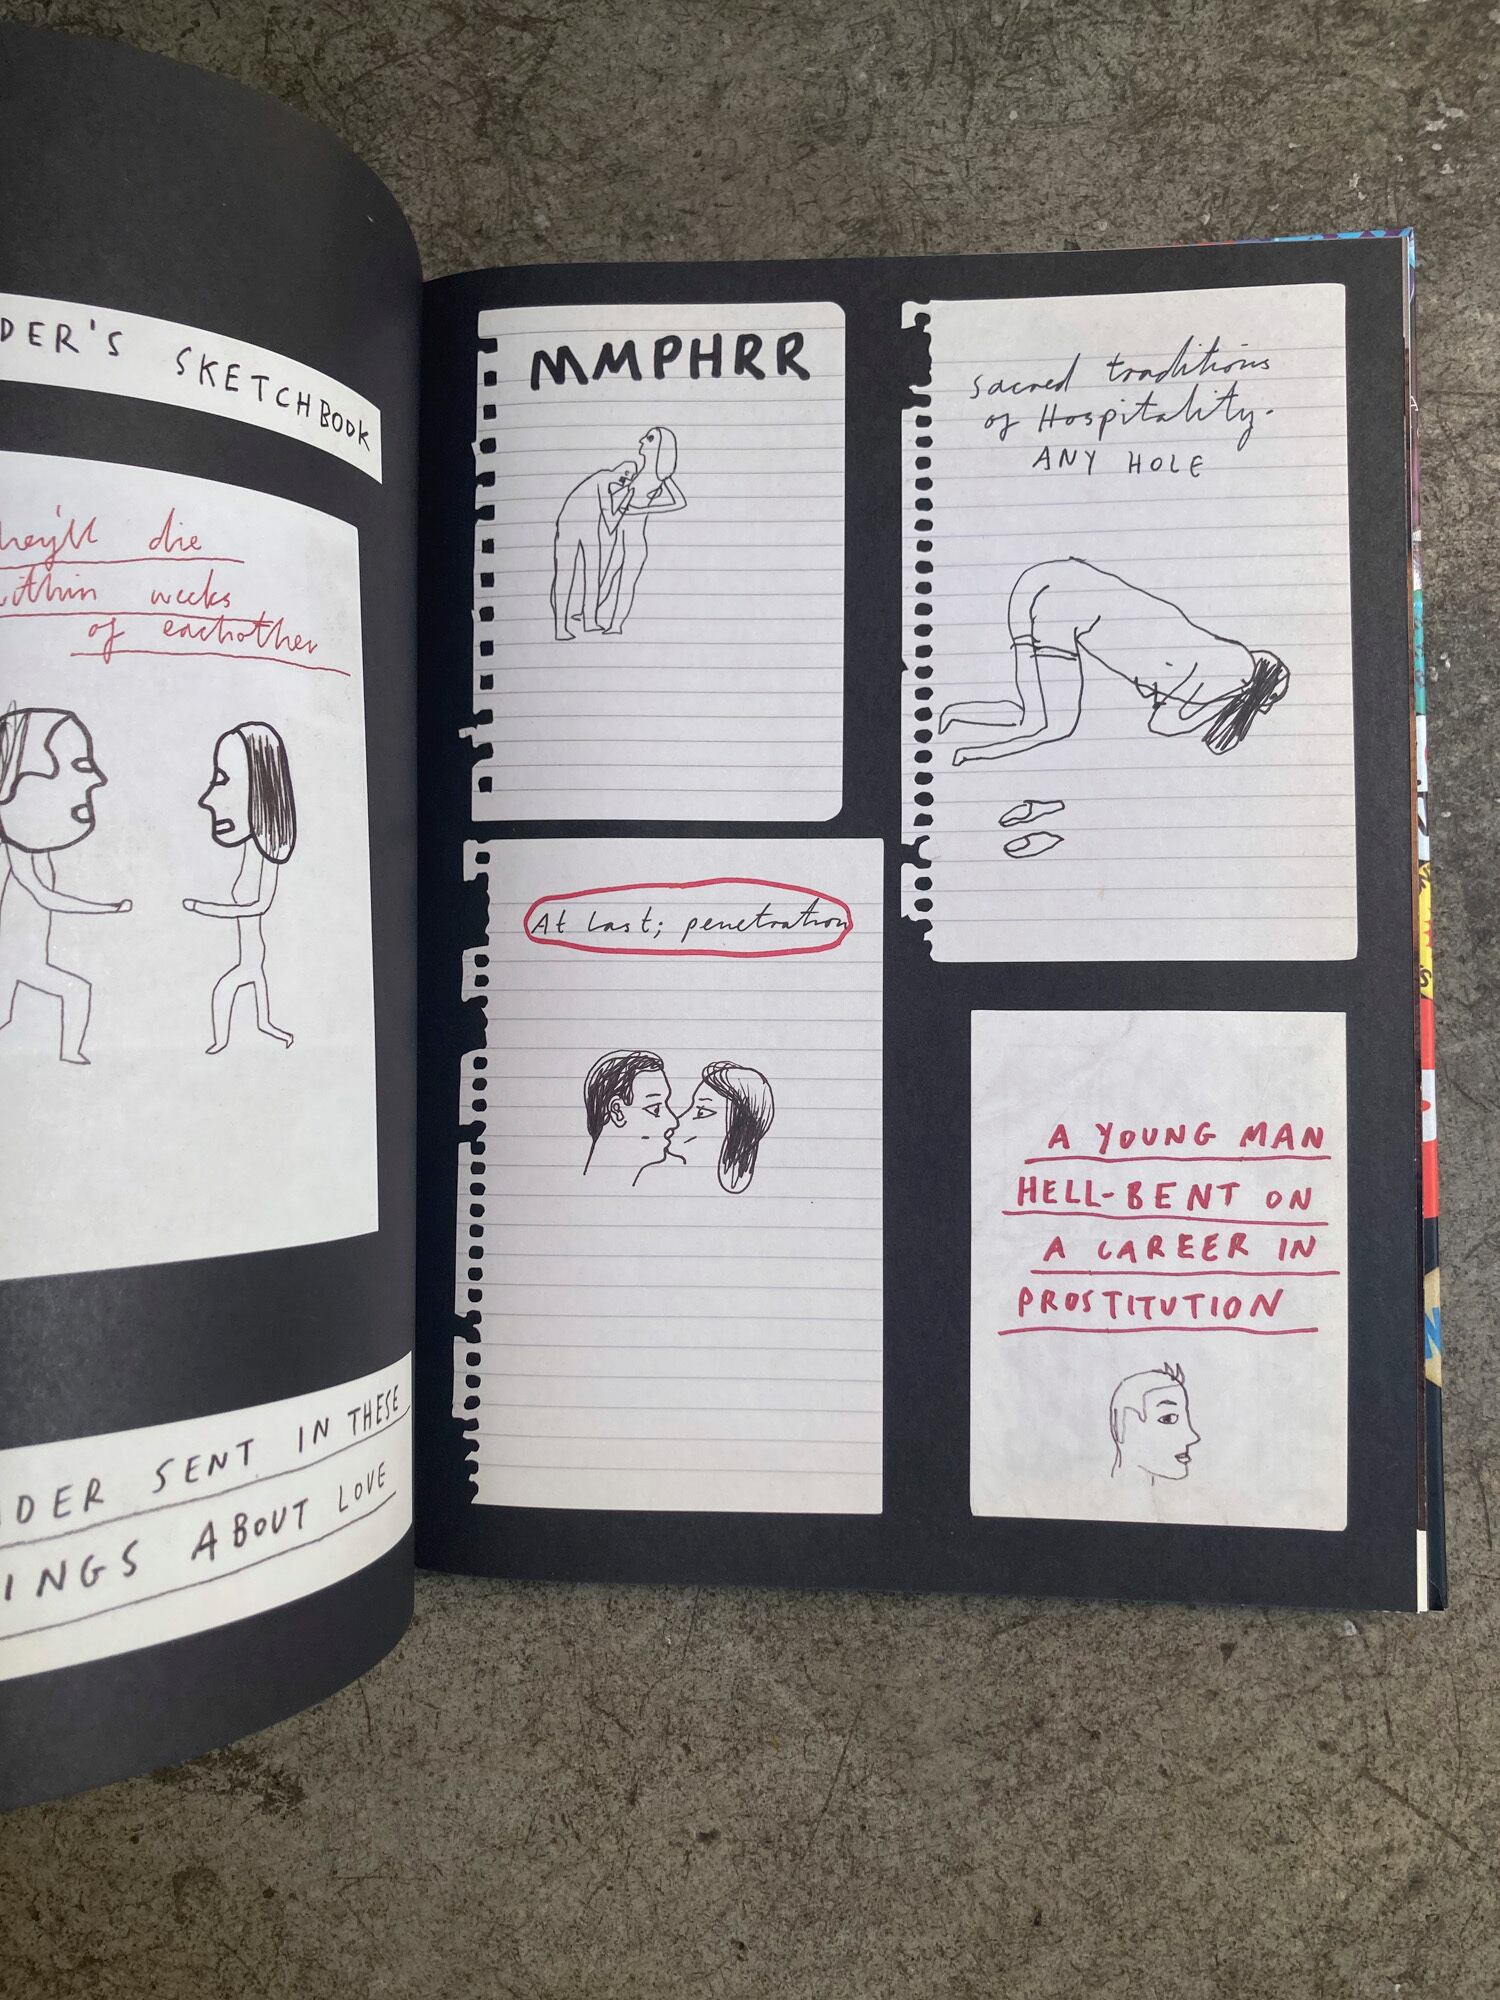 DER'S SKETCHBOOK
they'll die
within weeks
of eachother
DER SENT IN THESE
INGS ABOUT LOVE
MMPHRR
sacred traditions
of Hospitality.
ANY HOLE
At last; penetration
A YOUNG MAN
HELL-BENT ON
A CAREER IN
PROSTITUTION